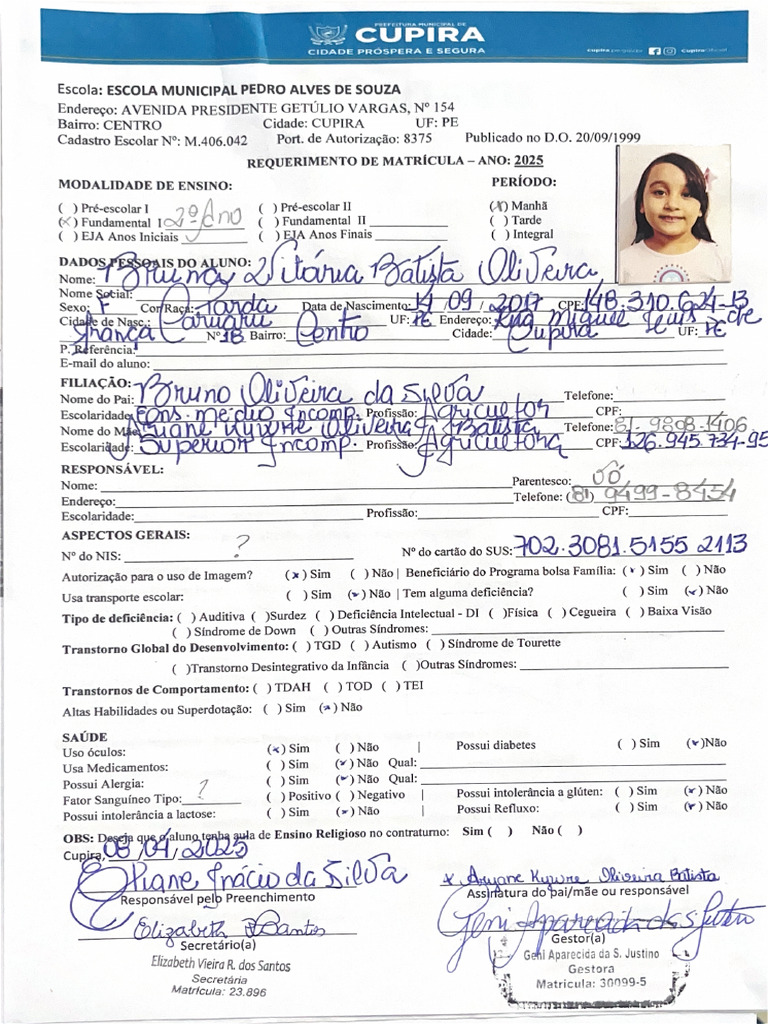 PREFEITURA MUNICIPAL DE
CUPIRA
CIDADE PRÓSPERA E SEGURA
Escola: ESCOLA MUNICIPAL PEDRO ALVES DE SOUZA
Endereço: AVENIDA PRESIDENTE GETÚLIO VARGAS, Nº 154
Bairro: CENTRO Cidade: CUPIRA UF: PE
Cadastro Escolar Nº: M.406.042 Port. de Autorização: 8375 Publicado no D.O. 20/09/1999
REQUERIMENTO DE MATRÍCULA – ANO: 2025
MODALIDADE DE ENSINO: PERÍODO:
( ) Pré-escolar I ( ) Pré-escolar II (x) Manhã
(x) Fundamental I 2º Ano ( ) Fundamental II ( ) Tarde
( ) EJA Anos Iniciais ( ) EJA Anos Finais ( ) Integral
DADOS PESSOAIS DO ALUNO:
Nome: Bruna Vitória Batista Oliveira
Nome Social:
Sexo: F Cor/Raça: Parda Data de Nascimento: 14 / 09 / 2017 CPF: 148.310.624-13
Cidade de Nasc.: Caruaru UF: PE Endereço: Rua Miguel
França Nº 18 Bairro: Centro Cidade: Cupira UF: PE
P. Referência:
E-mail do aluno:
FILIAÇÃO:
Nome do Pai: Bruno Oliveira da Silva Telefone:
Escolaridade: Ens. médio Incomp. Profissão: Agricultor CPF:
Nome do Mãe: Oliveira Batista Telefone: 81- 9808-1406
Escolaridade: Superior Incomp. Profissão: Agricultora CPF: 126.945.734-95
RESPONSÁVEL:
Nome: Parentesco: Vó
Endereço: Telefone: (81) 9499-8454
Escolaridade: Profissão: CPF:
ASPECTOS GERAIS:
Nº do NIS: ? Nº do cartão do SUS: 702.3081.5155 2113
Autorização para o uso de Imagem? (x) Sim ( ) Não | Beneficiário do Programa bolsa Família: (x) Sim ( ) Não
Usa transporte escolar: ( ) Sim (x) Não | Tem alguma deficiência? ( ) Sim (x) Não
Tipo de deficiência: ( ) Auditiva ( )Surdez ( ) Deficiência Intelectual - DI ( )Física ( ) Cegueira ( ) Baixa Visão
( ) Síndrome de Down ( ) Outras Síndromes:
Transtorno Global do Desenvolvimento: ( ) TGD ( ) Autismo ( ) Síndrome de Tourette
( )Transtorno Desintegrativo da Infância ( )Outras Síndromes:
Transtornos de Comportamento: ( ) TDAH ( ) TOD ( ) TEI
Altas Habilidades ou Superdotação: ( ) Sim (x) Não
SAÚDE
Uso óculos: (x) Sim ( ) Não | Possui diabetes ( ) Sim (x)Não
Usa Medicamentos: ( ) Sim (x) Não Qual:
Possui Alergia: ( ) Sim (x) Não Qual:
Fator Sanguíneo Tipo: ? ( ) Positivo ( ) Negativo | Possui intolerância a glúten: ( ) Sim (x) Não
Possui intolerância a lactose: ( ) Sim (x) Não | Possui Refluxo: ( ) Sim (x) Não
OBS: Deseja que o aluno tenha aula de Ensino Religioso no contraturno: Sim ( ) Não ( )
Cupira, 08 /04 / 2025
Eliane Inácio da Silva
Responsável pelo Preenchimento
x Aryane Kyvre Oliveira Batista
Assinatura do pai/mãe ou responsável
Elizabeth Santos
Secretário(a)
Elizabeth Vieira R. dos Santos
Secretária
Matrícula: 23.896
Geni Aparecida da S. Justino
Gestor(a)
Geni Aparecida da S. Justino
Gestora
Matricula: 30099-5